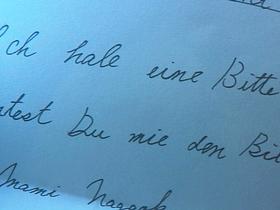 Ich hale eine Bitte
test Du mie den Bi
Mami Nagaok